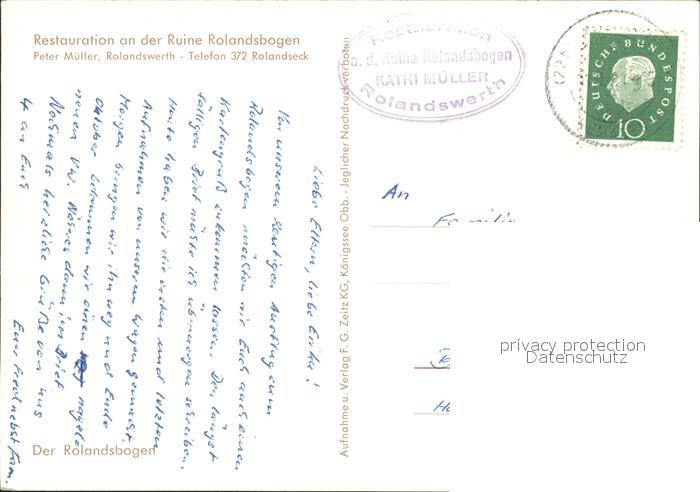 Restauration an der Ruine Rolandsbogen
Peter Müller, Rolandswerth - Telefon 372 Rolandseck
Liebe Eltern, liebe Erika!
Von unserem heutigen Ausflug zum
Rolandsbogen möchten wir Euch auch einen
Kartengruß zukommen lassen. Den längst
fälligen Brief möchte ich übermorgen schreiben.
Heute haben wir die ersten und letzten
Aufnahmen von unserem Wagen gemacht.
Morgen bringen wir ihn weg und Ende
Oktober bekommen wir einen nagel-
neuen VW. Näheres dann im Brief.
Nochmals herzliche Grüße von uns
4 an Euch
Euer Fried nebst Fam.
Der Rolandsbogen
Aufnahme u. Verlag F. G. Zeitz KG, Königssee Obb. - Jeglicher Nachdruck verboten
Restauration
a. d. Ruine Rolandsbogen
KATHI MÜLLER
Rolandswerth
DEUTSCHE BUNDESPOST
10
An
Familie
privacy protection
Datenschutz